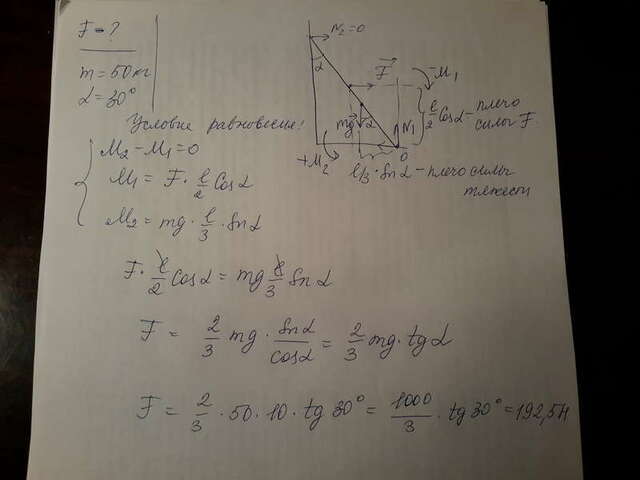 F - ?
m = 50 кг
α = 30°
N₂ = 0
α
F
-M₁
l/2 cosα - плечо
силы F.
mg
α
N₁
+M₂
0
l/3 · sinα - плечо силы
тяжести
Условие равновесия:
M₂ - M₁ = 0
M₁ = F · l/2 cosα
M₂ = mg · l/3 · sinα
F · l/2 cosα = mg l/3 sinα
F = 2/3 mg · sinα/cosα = 2/3 mg · tgα
F = 2/3 · 50 · 10 · tg 30° = 1000/3 · tg 30° = 192,5 Н